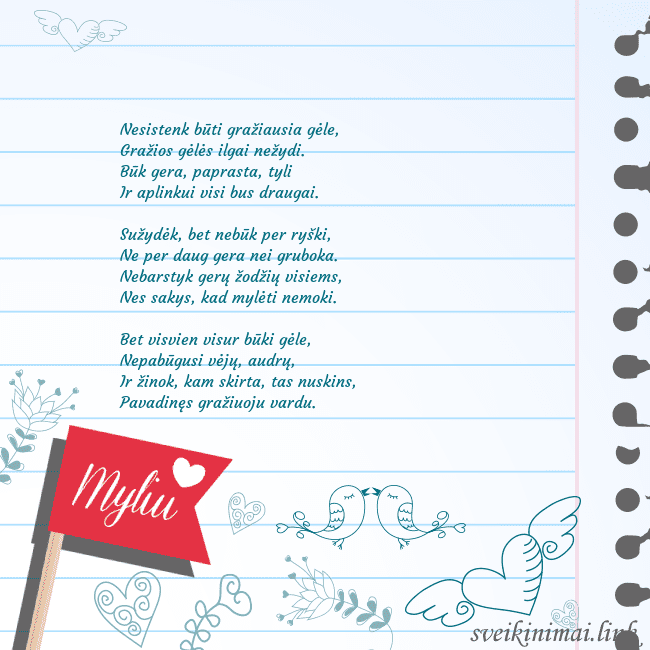 Nesistenk būti gražiausia gėle,
Gražios gėlės ilgai nežydi.
Būk gera, paprasta, tyli
Ir aplinkui visi bus draugai.
Sužydėk, bet nebūk per ryški,
Ne per daug gera nei gruboka.
Nebarstyk gerų žodžių visiems,
Nes sakys, kad mylėti nemoki.
Bet visvien visur būki gėle,
Nepabūgusi vėjų, audrų,
Ir žinok, kam skirta, tas nuskins,
Pavadinęs gražiuoju vardu.
Myliu
sveikinimai.link